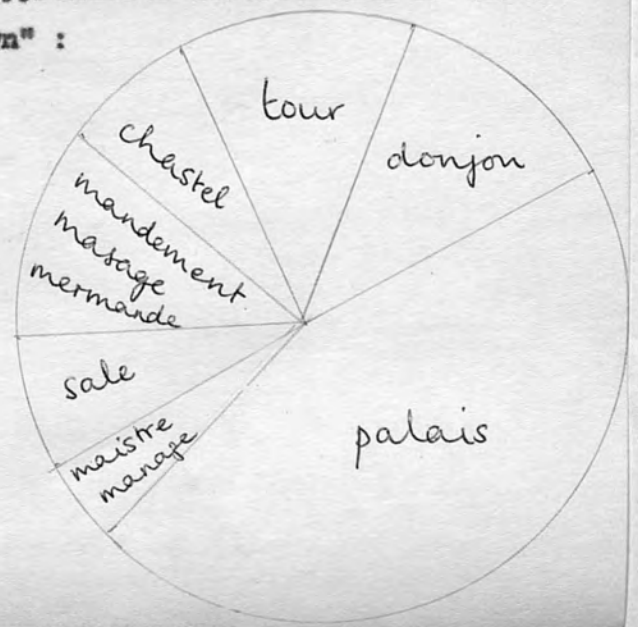 n" :
tour
donjon
chastel
mandement
masage
mermande
sale
maistre
manage
palais